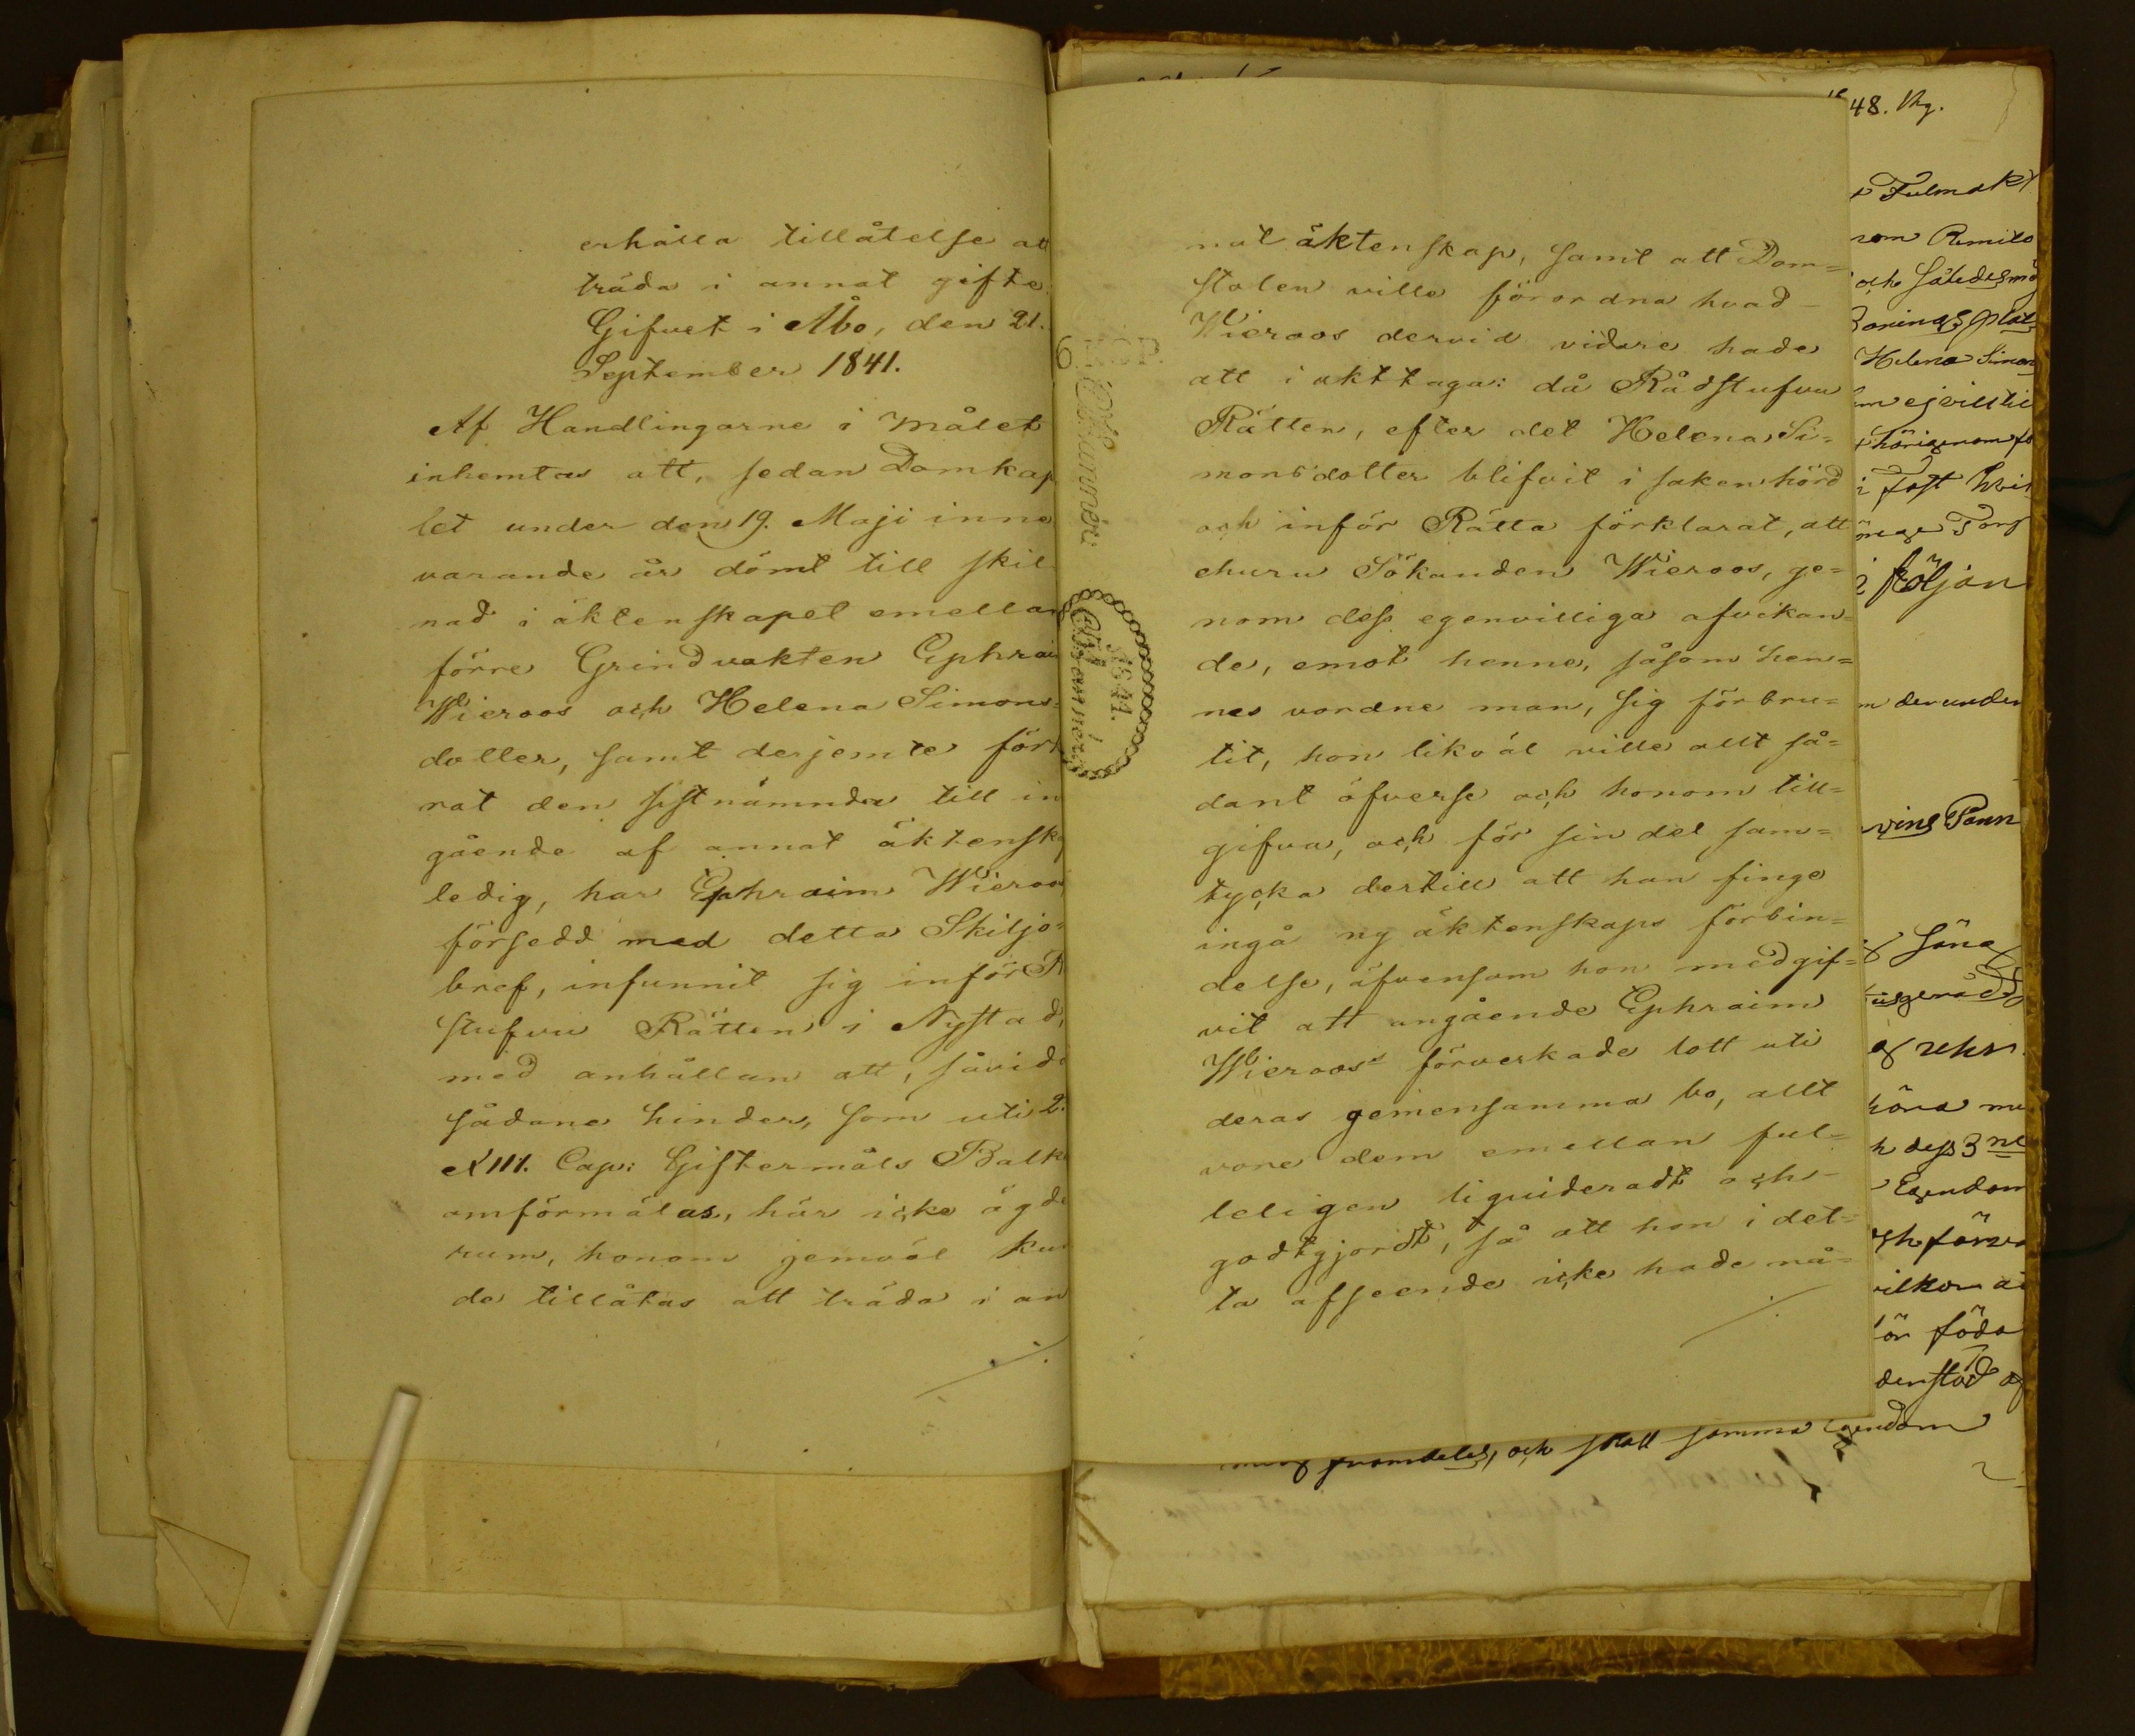 erhålla tillåtelse att
träda i annat gifte.
Gifvet i Åbo, den 21.
September 1841.
Af Handlingarne i målet
inhemtas att, sedan Domkap
let under den 19. Maji inne
varande år dömt till skil
nad i äktenskapet emellan
förre Grindvakten Ephraim
Wieroos och Helena Simons=
dotter, samt derjemte för
rat den sistnämnda till in
gående af annat äktensk
ledig, har Ephraim Wieroos
försedd med detta Skiljo=
bref, infunnit sig inför R
stufvu Rätten i Nystad,
med anhållan att, såvida
sådana hinder, som uti 2.
XIII. Cap: Giftermåls Balk
omförmälas, här icke ägde
rum, honom jemväl kun
de tillåtas att träda i an
nat äktenskap, samt att Dom=
stolen ville förordna hvad
Wieroos dervid vidare hade
att iakttaga: då Rådstufvu
Rätten, efter det Helena Si=
monsdotter blifvit i saken hörd
och inför Rätta förklarat, att
ehuru Sökanden Wieroos, ge=
nom dess egenvilliga afvikan=
de, emot henne, såsom hen=
nes vordne man, sig förbru=
tit, hon likväl ville allt så=
dant öfverse och honom till=
gifva, och för sin del sam=
tycka dertill att han finge
ingå ny äktenskaps förbin=
delse, äfvensom hon medgif=
vit att angående Ephraim
Wieroos förverkade lott uti
deras gemensamma bo, allt
vore dem emellan full=
keligen liquideradt och
godtgjordt, så att hon i det=
ta afseende icke hade nå=
1841.
48.
Fulmakt
som Rimito
och
Bonings plat
Helena Simon
i följan
m derunder
h dess 3ne
Egendom
och förva
vilkor
föda
framdeles, och skall samma Egendom